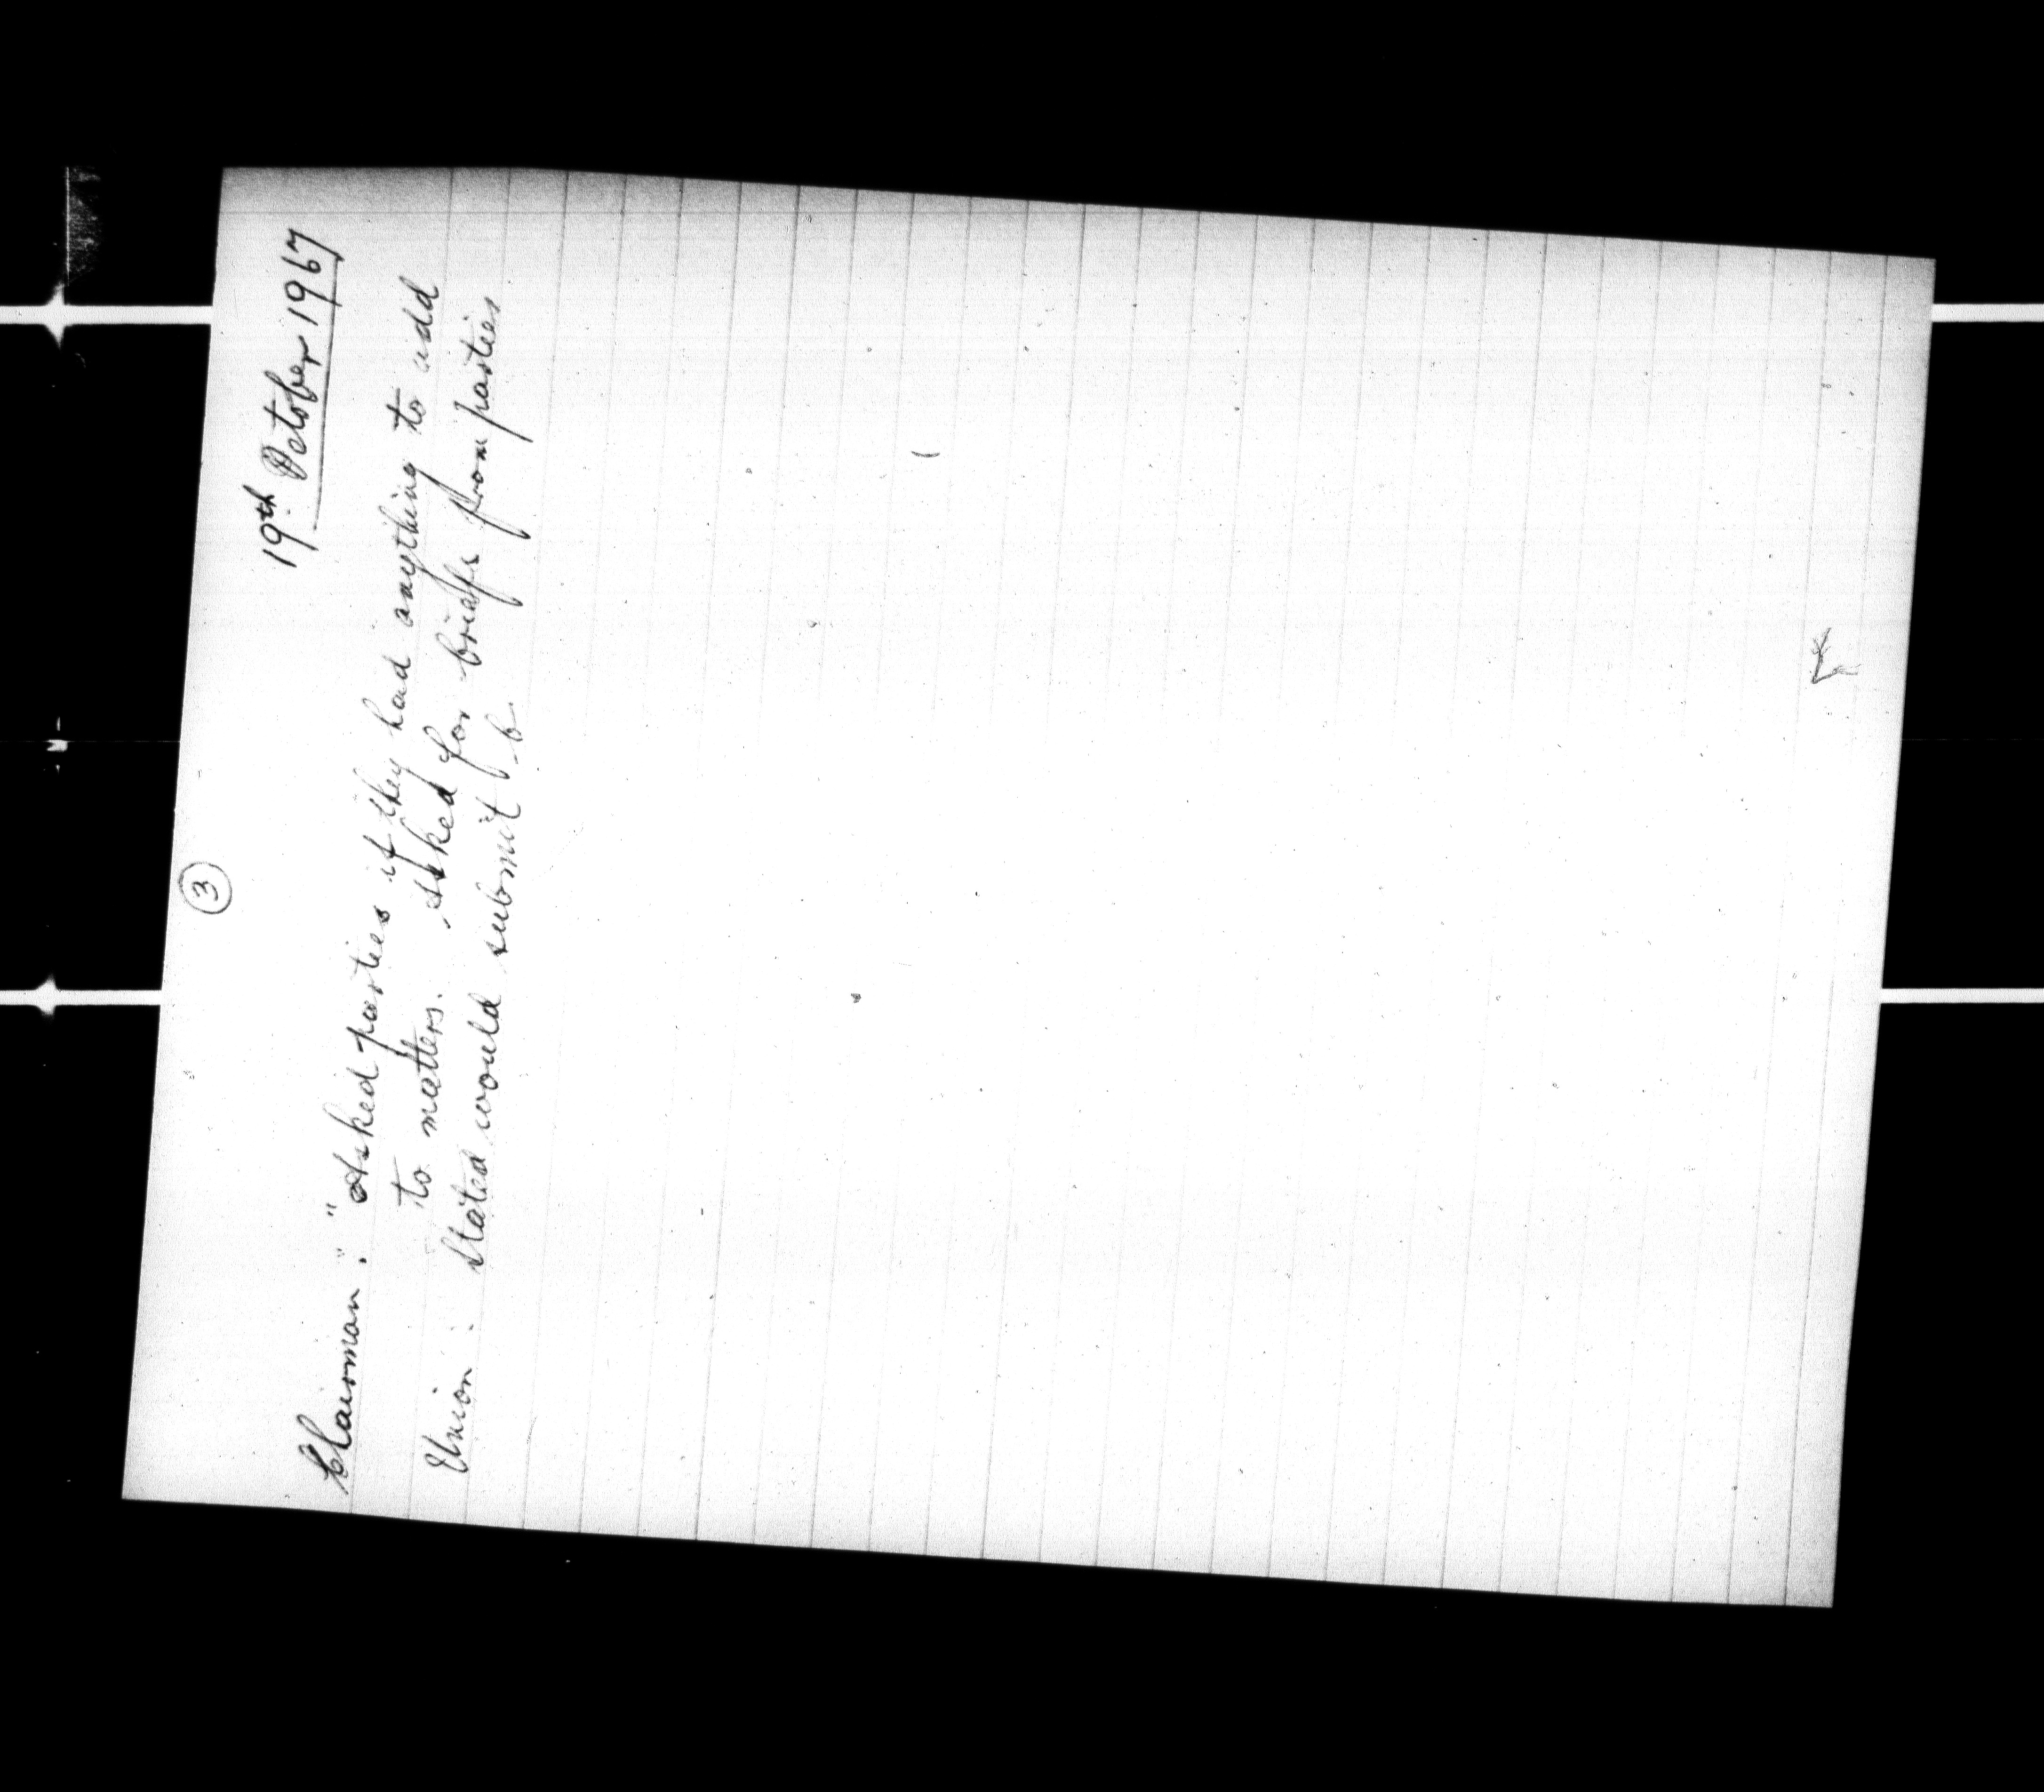 ③
19th October 1967
Chairman: " Asked parties if they had anything to add
to matters. Asked for briefs from parties
Union: Stated would submit b.